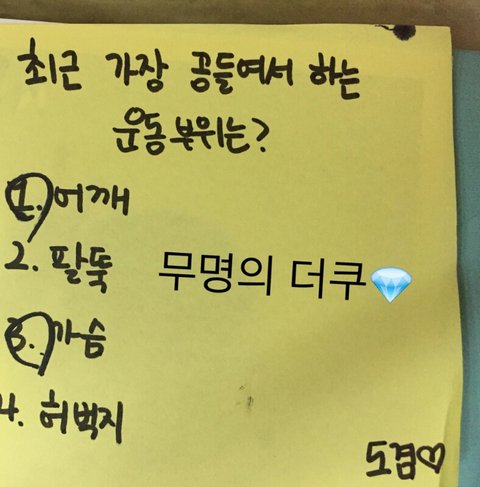 최근 가장 공들여서 하는
운동부위는?
1. 어깨
2. 팔뚝
무명의 더쿠💎
3. 가슴
4. 허벅지
도겸♡